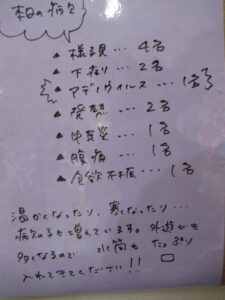 本日の病欠
▲ 様子見… 4名
▲ 下痢 … 2名
▲ アデノウイルス … 1名
▲ 発熱 … 2名
▲ 中耳炎 … 1名
▲ 腹痛 … 1名
▲ 食欲不振 … 1名
温かくなったり、寒くなったり…
病欠の子も増えています。外遊びも
多くなるので 水筒も たっぷり
入れてきてください!!